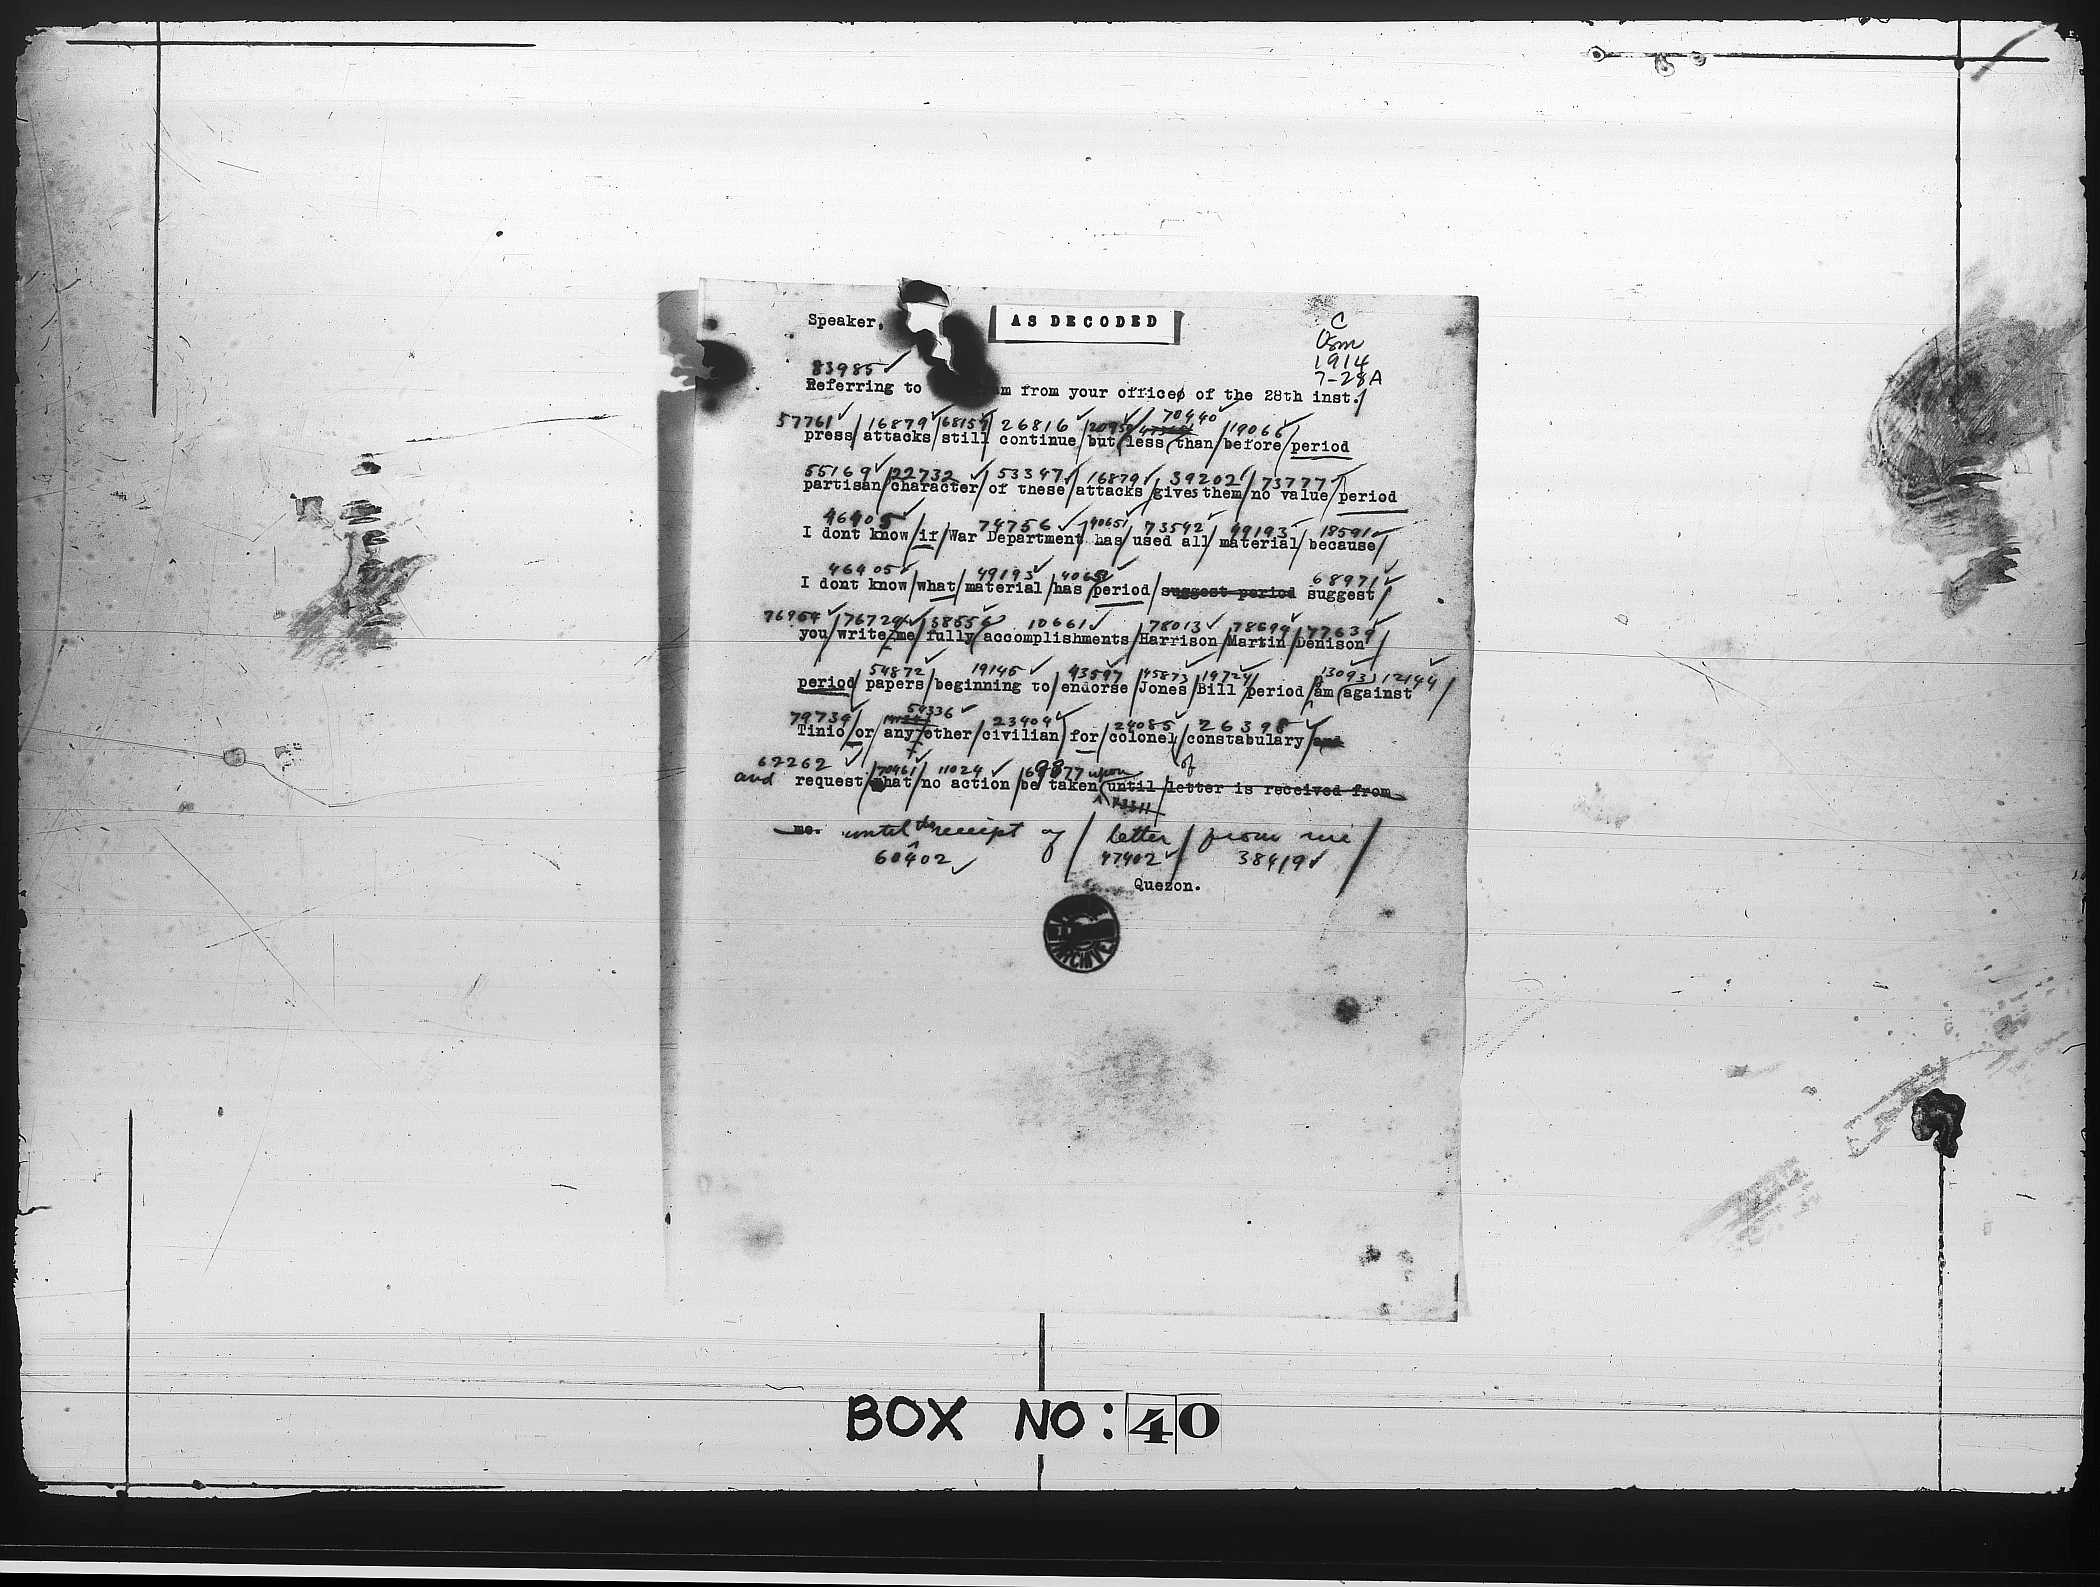 Speaker.
AS DECODED
C
Osm
1914
7-28A
83985
Referring to am from your office of the 28th inst./
57761 16879 68154 26816 70440 19066
press/ attacks/ still/ continue/ but/ less/ than/ before/ period
55169 22732 53347 16879 39202 73777
partisan/ character/ of these/ attacks/ gives them/ no value/ period
46405 74756 40651 73542 49193 18591
I dont know/ if/ War Department/ has/ used all/ material/ because/
46405 49193 40651 68971
I dont know/ what/ material/ has/ period/ suggest period suggest/
76954 76729 38556 10661 78013 78694 77639
you/ write/ me/ fully/ accomplishments/ Harrison/ Martin/ Denison/
54872 19145 43597 45873 19724 13093 12144
period/ papers/ beginning to/ endorse/ Jones/ Bill/ period/ am/ against/
79739 54336 23404 24085 26398
Tinio/ or/ any/ other/ civilian/ for/ colonel/ constabulary/ and
of
62262 70461 11024 69877 upon
and request/ that/ no action/ be taken/ until/ letter is received from
73311
me. until the receipt of/ letter/ from me/
60402 47402 38419
Quezon.
BOX NO: 40